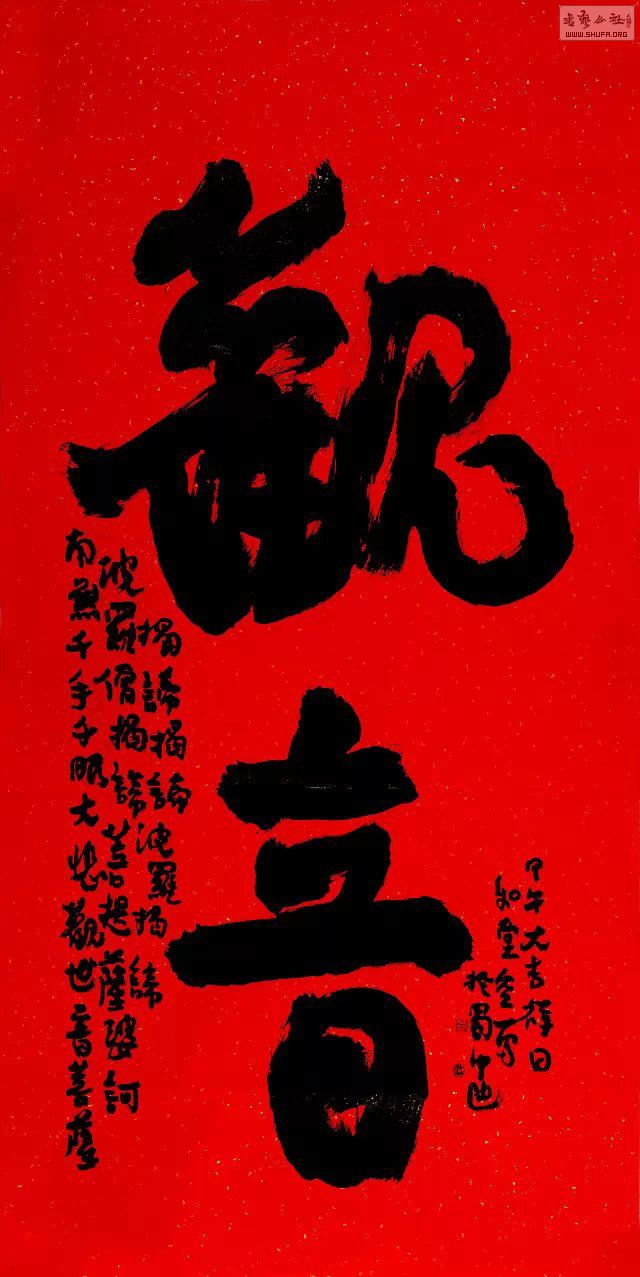 書藝公社
WWW.SHUFA.ORG
觀音
甲午大吉祥日
於蜀中
揭諦揭諦波羅揭諦
波羅僧揭諦菩提薩婆訶
南無千手千眼大悲觀世音菩薩